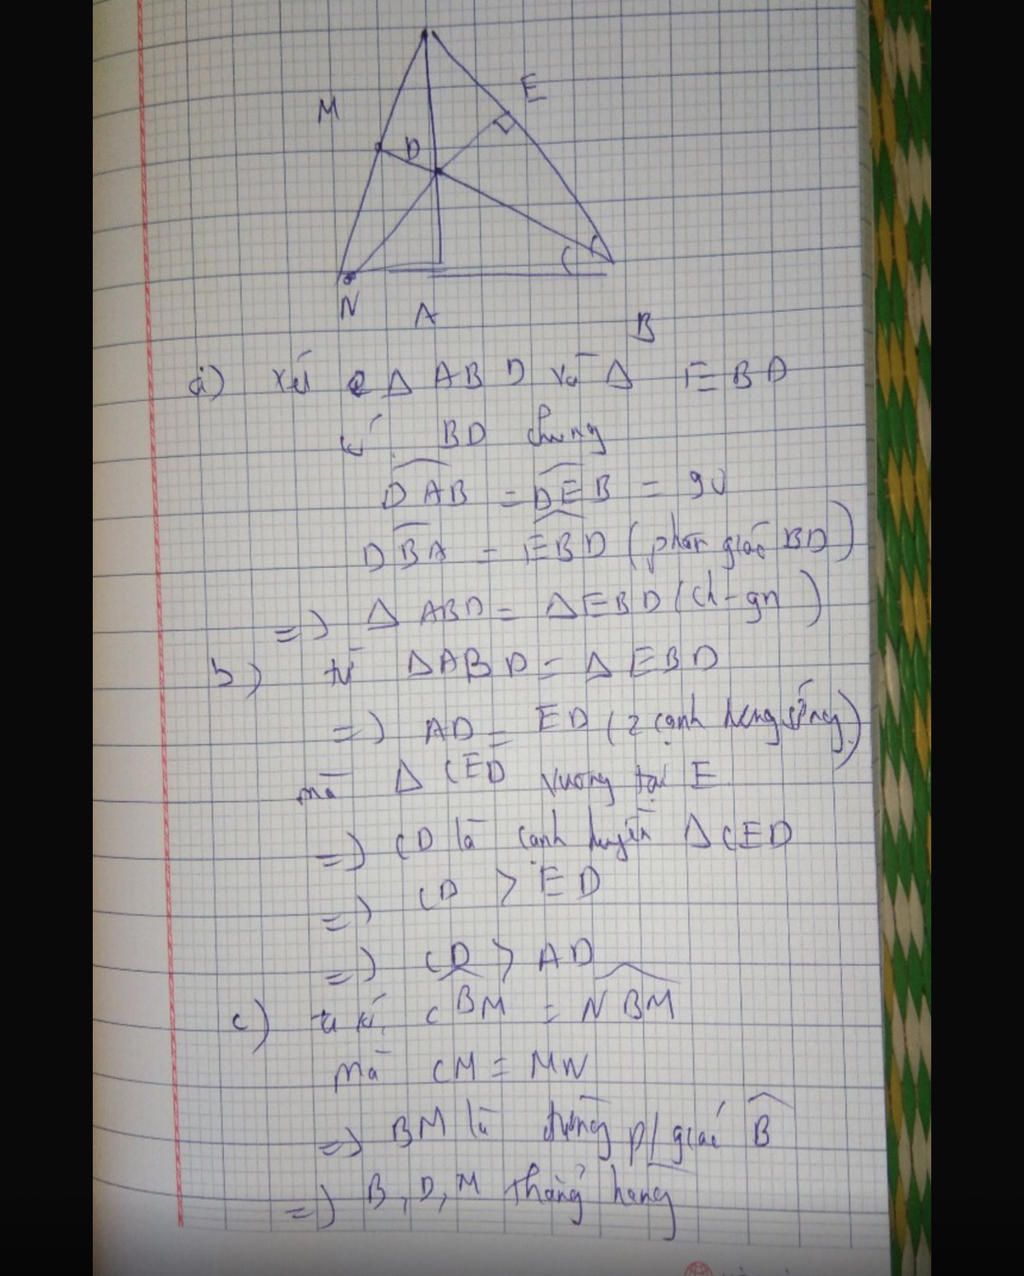 M
E
D
N
A
B
a) Xét Δ ABD và Δ EBD
có BD chung
DAB = DEB = 90
DBA = EBD (phân giác BD)
=) Δ ABD = Δ EBD (ch-gn)
b) từ Δ ABD = Δ EBD
=) AD = ED (2 cạnh tương ứng)
mà Δ CED vuông tại E
=) CD là cạnh huyền Δ CED
=) CD > ED
=) CD > AD
c) ta có CBM = NBM
mà CM = MN
=) BM là đường p/giác B
=) B, D, M thẳng hàng